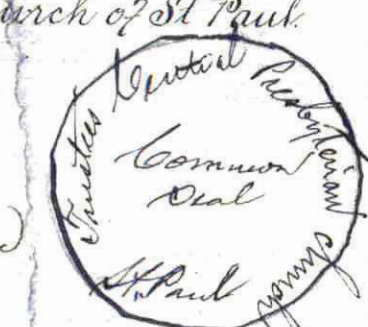 urch of St Paul.
Trustees Central Presbyterian Church
Common
Seal
St. Paul